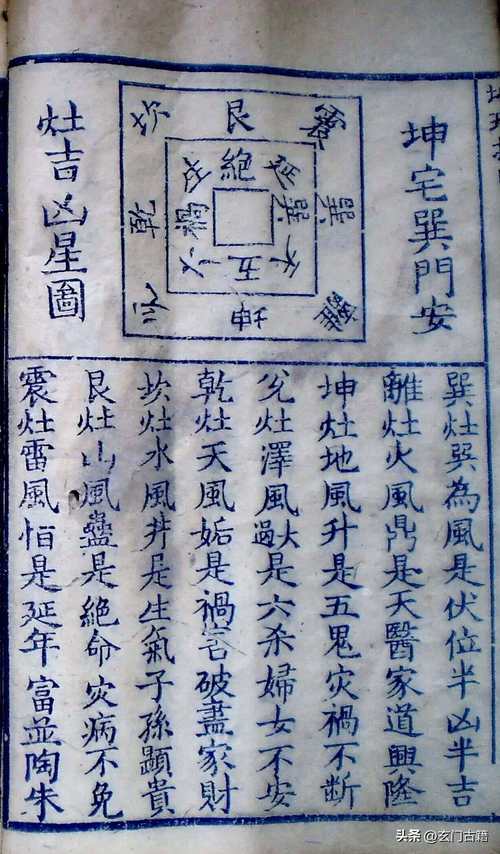 坤宅巽門安
艮 震
絕 延
乾 禍 巽 巽
六 五
坤 離
灶吉凶星圖
巽灶巽為風是伏位半凶半吉
離灶火風鼎是天醫家道興隆
坤灶地風升是五鬼灾禍不断
兊灶澤風大過是六杀婦女不安
乾灶天風姤是禍害破盡家財
坎灶水風井是生氣子孫顕貴
艮灶山風蠱是絕命灾病不免
震灶雷風恒是延年富並陶朱
头条 @玄门古籍